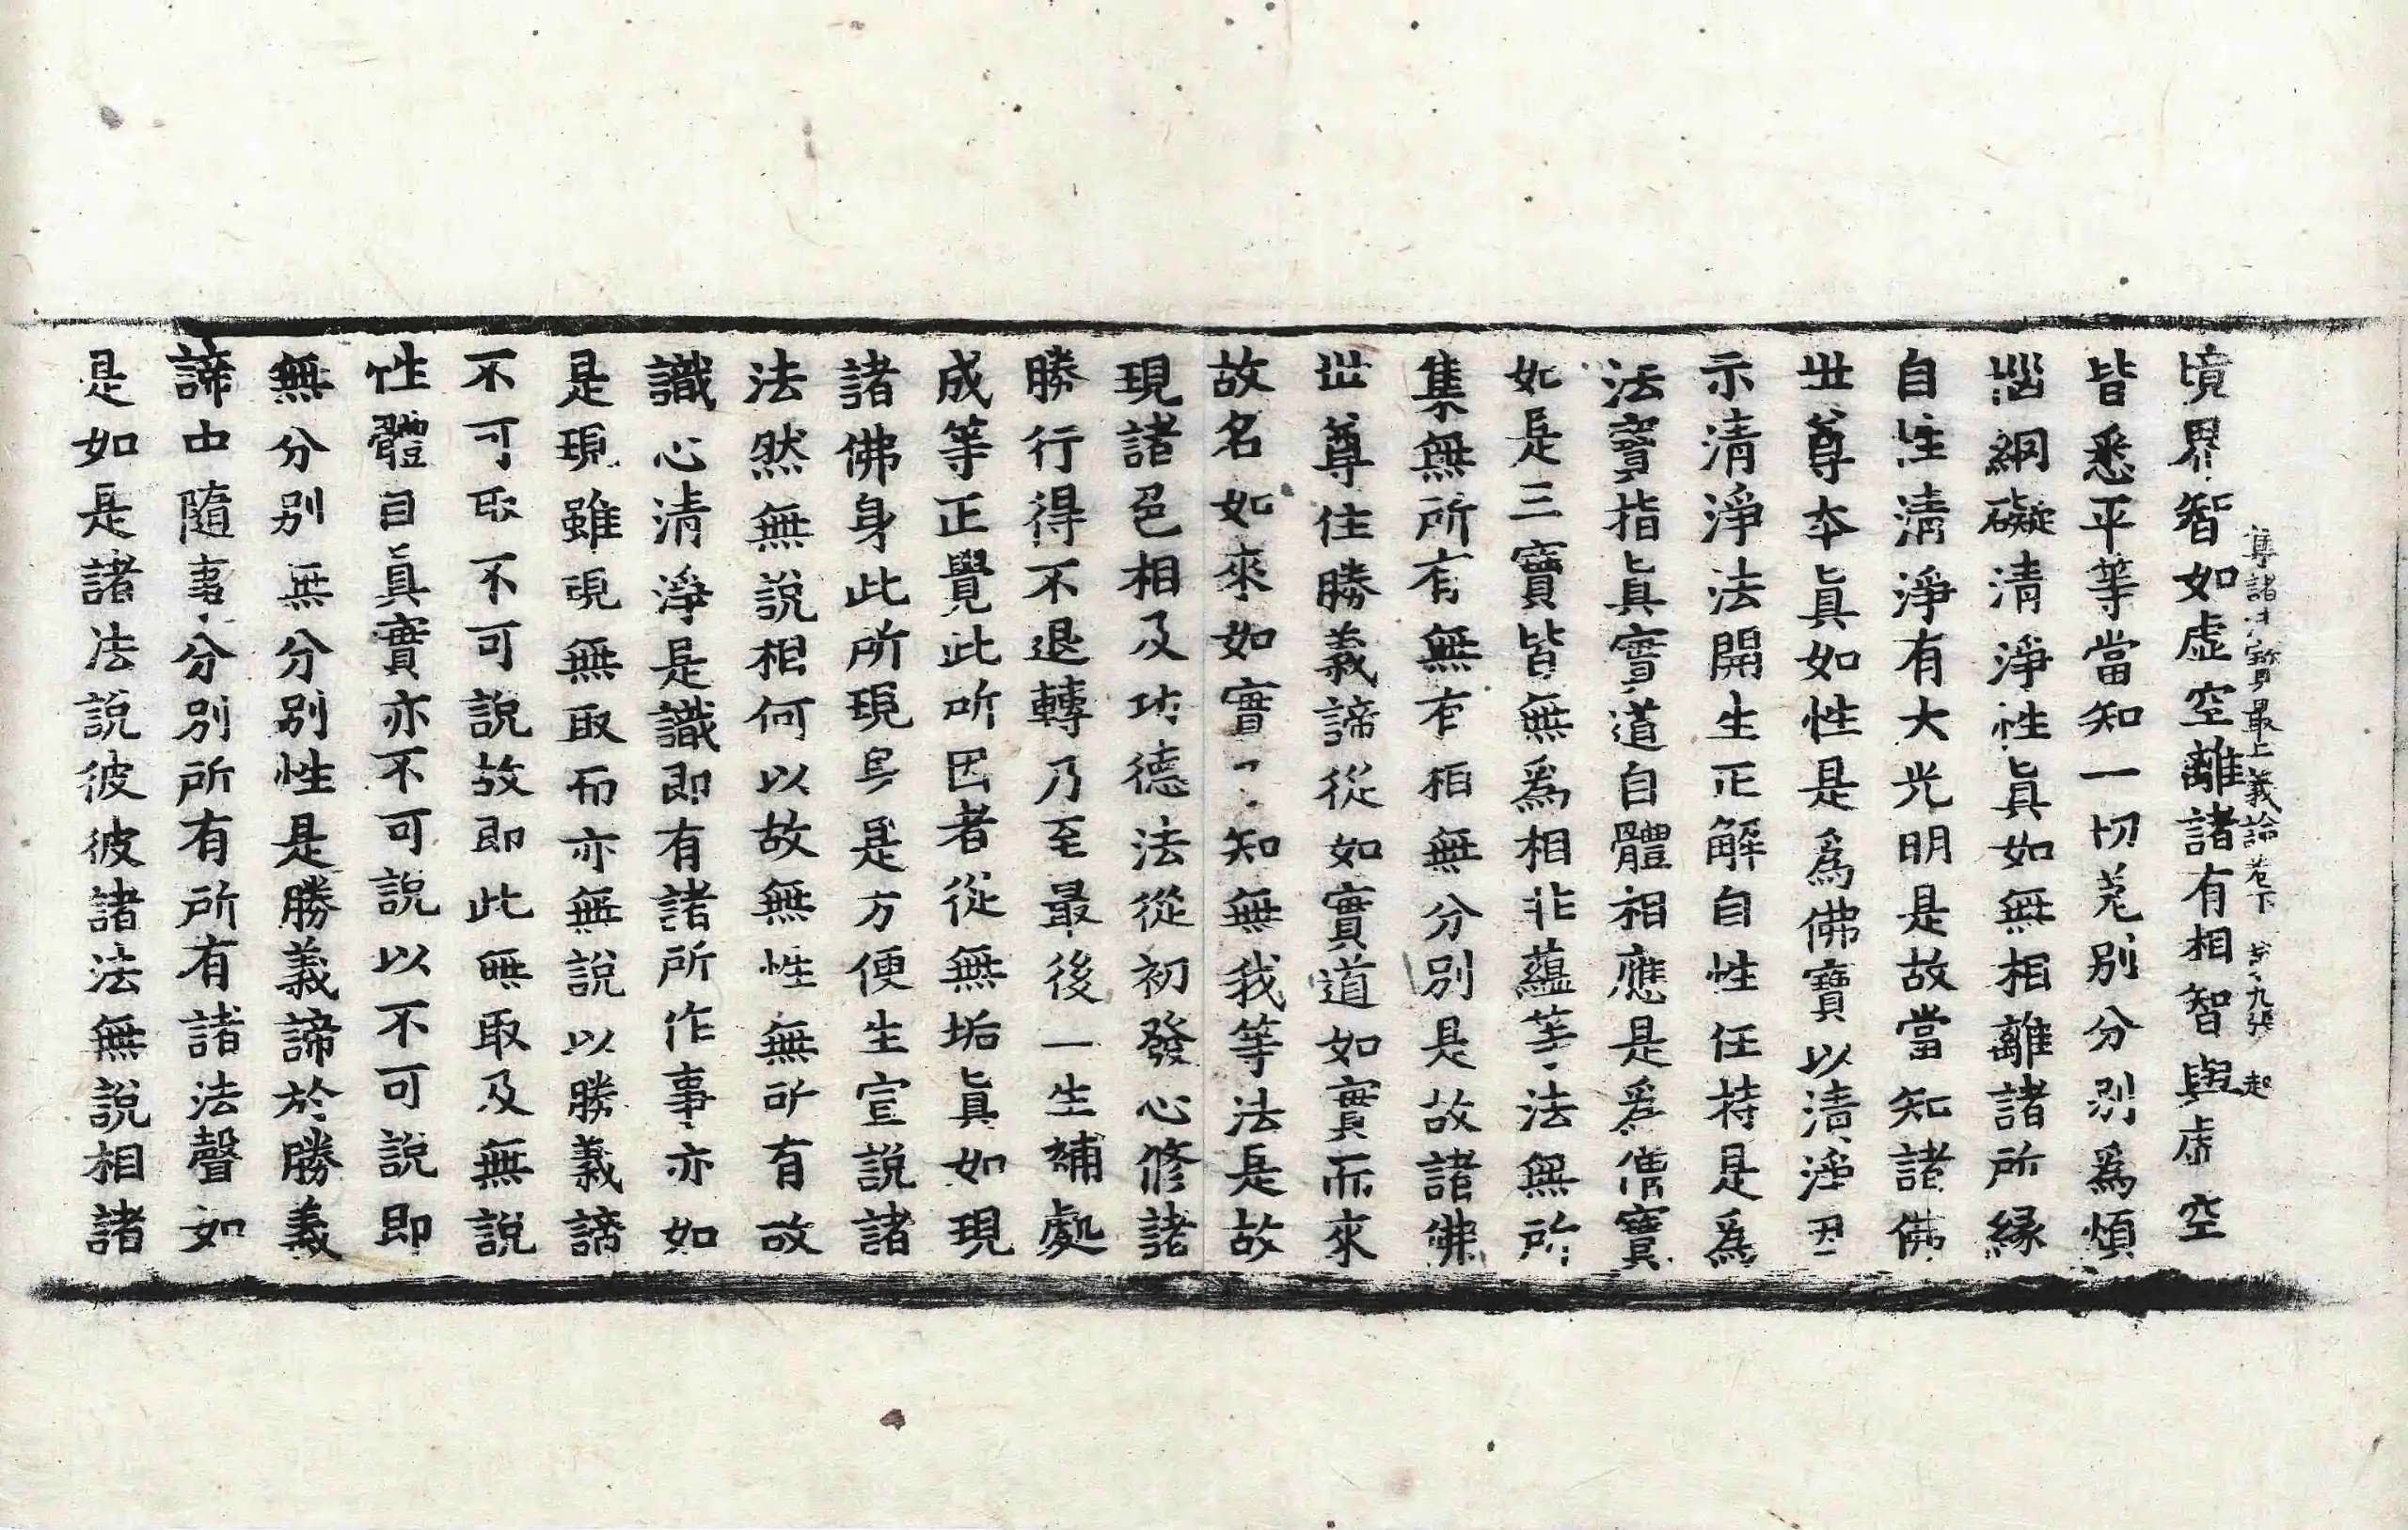 境界智如虛空離諸有相智與虛空
集諸法寶最上義論卷下 第九張 起
皆悉平等當知一切差別分別爲煩
惱網礙清淨性眞如無相離諸所緣
自性清淨有大光明是故當知諸佛
世尊本眞如性是爲佛寶以清淨因
示清淨法開生正解自性任持是爲
法寶指眞實道自體相應是爲僧寶
如是三寶皆無爲相非蘊等法無所
集無所有無有相無分別是故諸佛
世尊住勝義諦從如實道如實而來
故名如來如實了知無我等法是故
現諸色相及功德法從初發心修諸
勝行得不退轉乃至最後一生補處
成等正覺此所因者從無垢眞如現
諸佛身此所現身是方便生宣說諸
法然無說相何以故無性無所有故
識心清淨是識即有諸所作事亦如
是現雖現無取而亦無說以勝義諦
不可取不可說故即此無取及無說
性體自眞實亦不可說以不可說即
無分別無分別性是勝義諦於勝義
諦中隨事分別所有所有諸法聲如
是如是諸法說彼彼諸法無說相諸